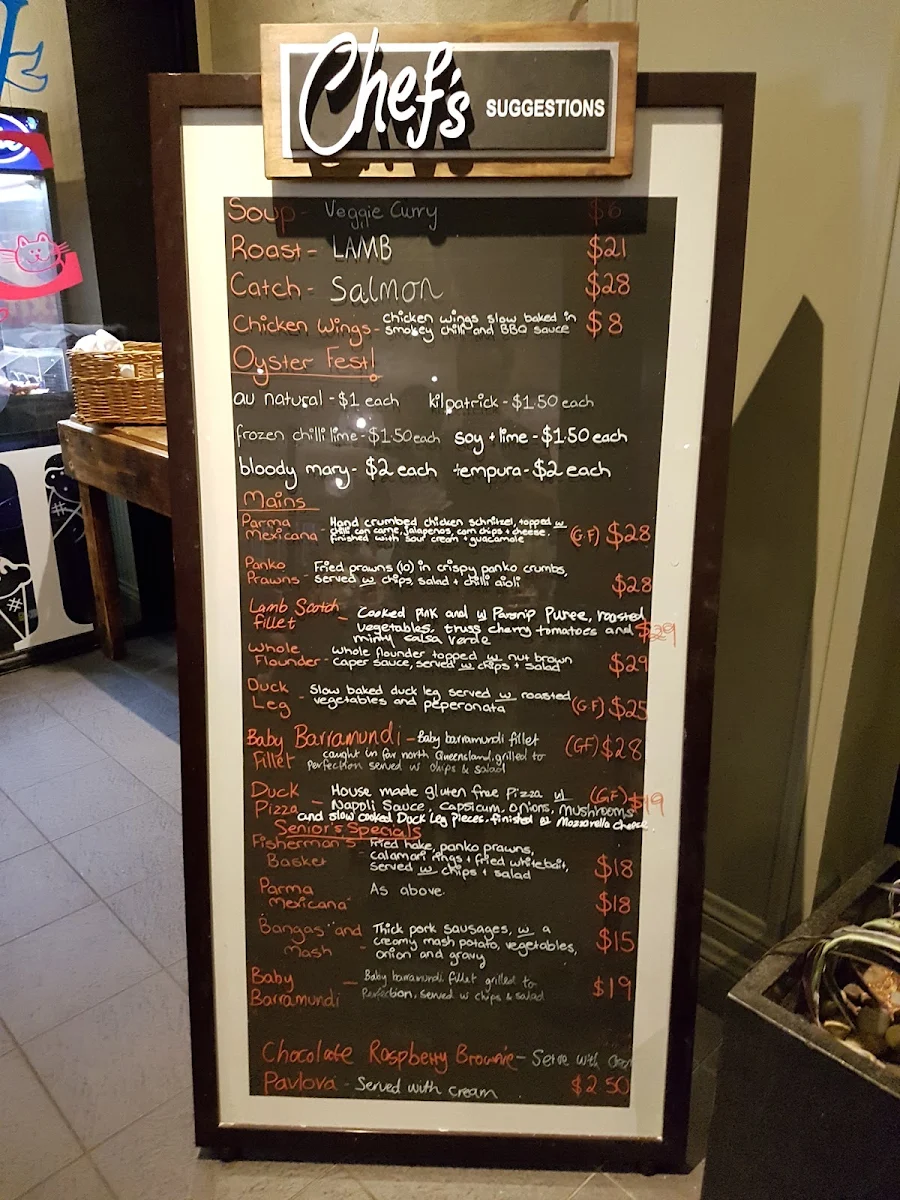 Chef's SUGGESTIONS
Soup - Veggie Curry $6
Roast - LAMB $21
Catch - Salmon $28
Chicken Wings - chicken wings slow baked in
smokey chilli and BBQ sauce $8
Oyster Fest!
au natural - $1 each kilpatrick - $1.50 each
frozen chilli lime - $1.50 each soy + lime - $1.50 each
bloody mary - $2 each tempura - $2 each
Mains
Parma Hand crumbed chicken schnitzel, topped w
Mexicana chilli con carne, jalapenos, corn chips + cheese.
finished with sour cream + guacamole (G.F) $28
Panko Fried prawns (10) in crispy panko crumbs,
Prawns - served w chips, salad + chilli aioli $28
Lamb Scotch - Cooked PINK and w Parsnip Puree, roasted
fillet vegetables, truss cherry tomatoes and $29
minty calsa verde
Whole whole flounder topped w nut brown
Flounder - caper sauce, served w chips + salad $29
Duck - Slow baked duck leg served w roasted
Leg vegetables and peperonata (G.F) $25
Baby Barramundi - Baby barramundi fillet (GF) $28
Fillet caught in far north Queensland, grilled to
perfection served w chips & salad
Duck House made gluten free Pizza w (G.F) $19
Pizza - Napoli Sauce, Capsicum, onions, mushrooms
and slow cooked Duck Leg pieces. finished w Mozzarella cheese.
Senior's Specials
Fisherman's - Fried hake, panko prawns,
Basket calamari rings + fried whitebait,
served w chips + salad $18
Parma As above.
Mexicana $18
Bangas and Thick pork sausages, w a
Mash - creamy mash potato, vegetables, $15
onion and gravy
Baby - Baby barramundi fillet grilled to
Barramundi Perfection, served w chips & salad $19
Chocolate Raspberry Brownie - Serve with
Pavlova - Served with cream $2 50